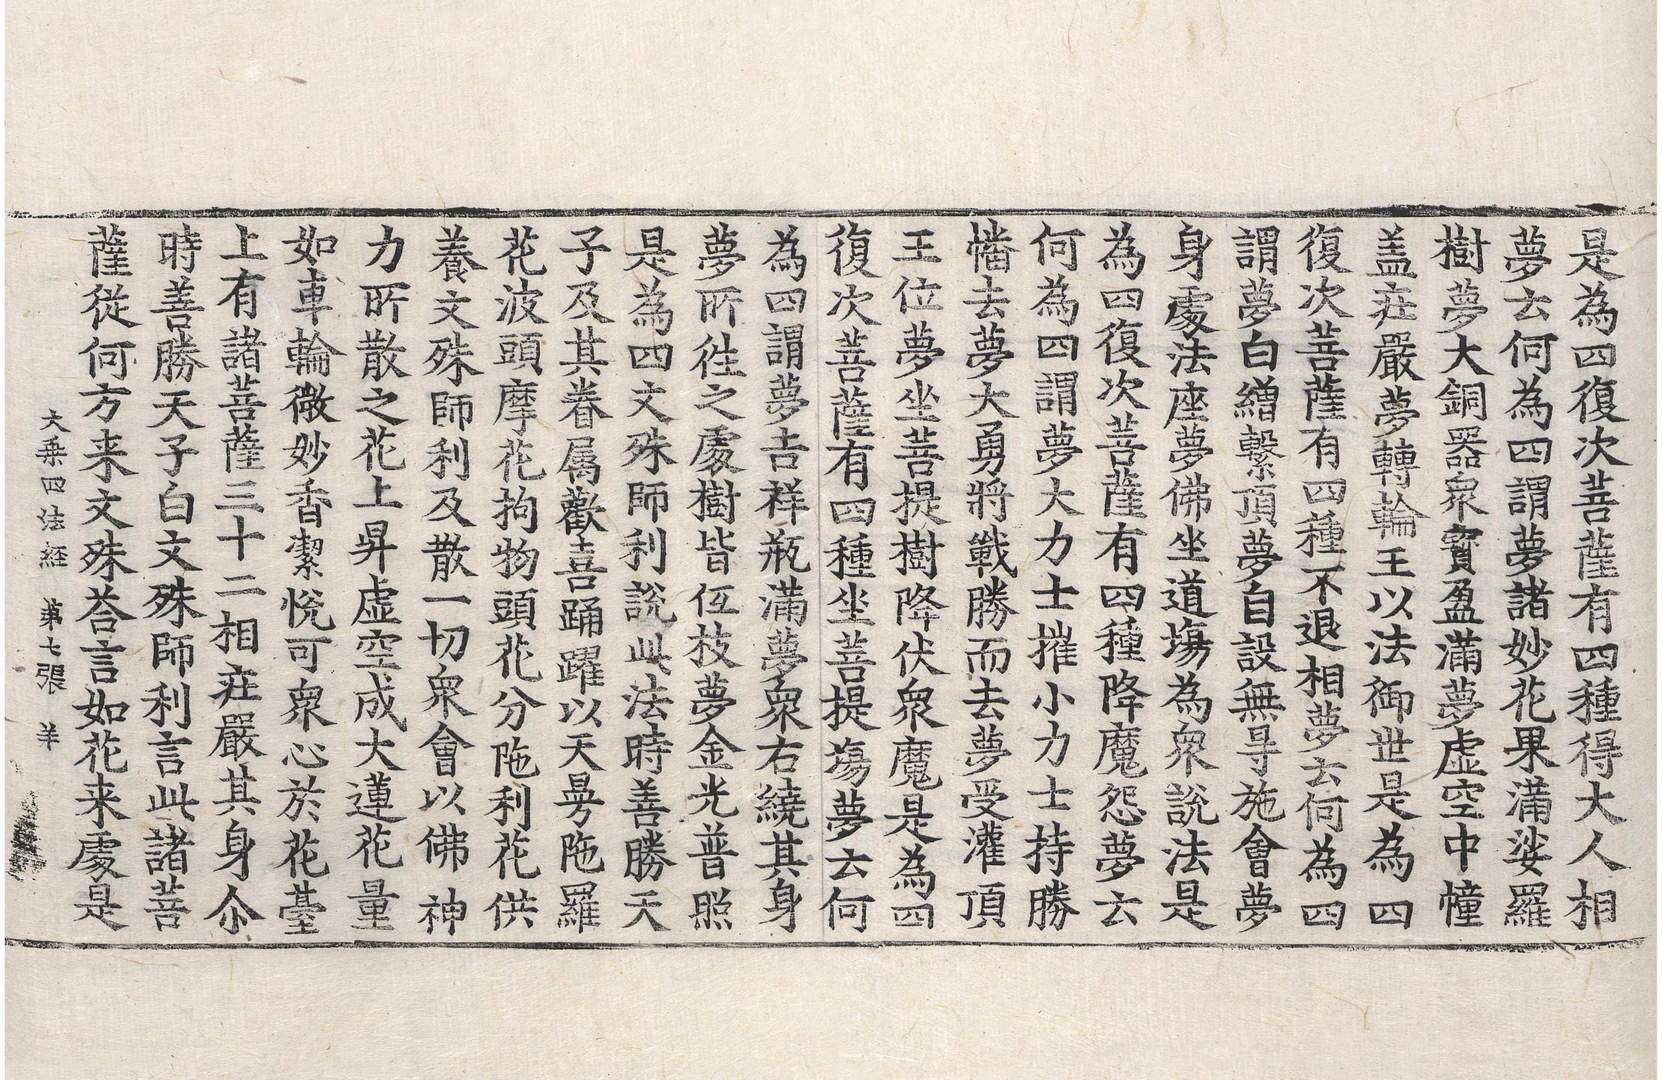 是為四復次菩薩有四種得大人相
夢云何為四謂夢諸妙花果滿娑羅
樹夢大銅器衆寳盈滿夢虛空中幢
盖庄嚴夢轉輪王以法御世是為四
復次菩薩有四種不退相夢云何為四
謂夢白繒繫頂夢自設無㝵施會夢
身處法座夢佛坐道塲為衆說法是
為四復次菩薩有四種降魔怨夢云
何為四謂夢大力士摧小力士持勝
幡去夢大勇將戰勝而去夢受灌頂
王位夢坐菩提樹降伏衆魔是為四
復次菩薩有四種坐菩提塲夢云何
為四謂夢吉祥瓶滿夢衆右繞其身
夢所往之處樹皆仾枝夢金光普照
是為四文殊師利說此法時善勝天
子及其眷属歡喜踊躍以天曼陁羅
花波頭摩花拘物頭花分陁利花供
養文殊師利及散一切衆會以佛神
力所散之花上昇虛空成大蓮花量
如車輪微妙香潔悅可衆心於花臺
上有諸菩薩三十二相庄嚴其身尒
時善勝天子白文殊師利言此諸菩
薩從何方来文殊荅言如花来處是
大乗四法經 第七張 羊